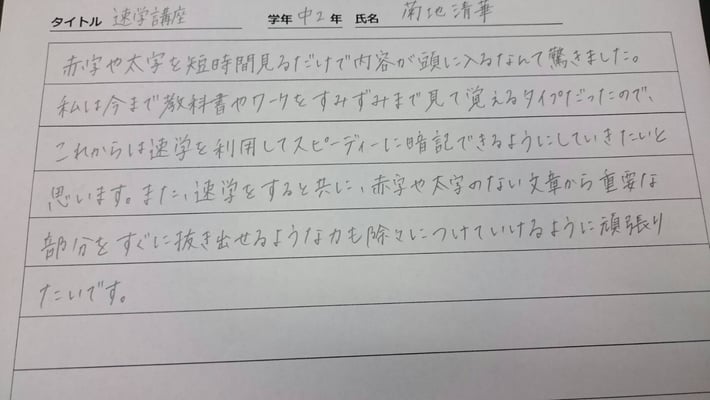 タイトル 速学講座 学年 中2 年 氏名 菊地清華
赤字や太字を短時間見るだけで内容が頭に入るなんて驚きました。
私は今まで教科書やワークをすみずみまで見て覚えるタイプだったので、
これからは速学を利用してスピーディーに暗記できるようにしていきたいと
思います。また、速学をすると共に、赤字や太字のない文章から重要な
部分をすぐに抜き出せるような力も除々につけていけるように頑張り
たいです。